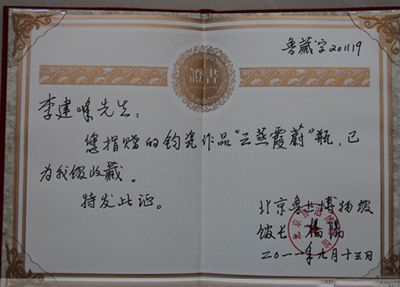 鲁藏字201119
證書
李建峰先生：
您捐赠的钧瓷作品“云蒸霞蔚”瓶，已
为我馆收藏。
特发此证。
北京鲁迅博物馆
馆长 杨阳
二〇一一年九月十三日